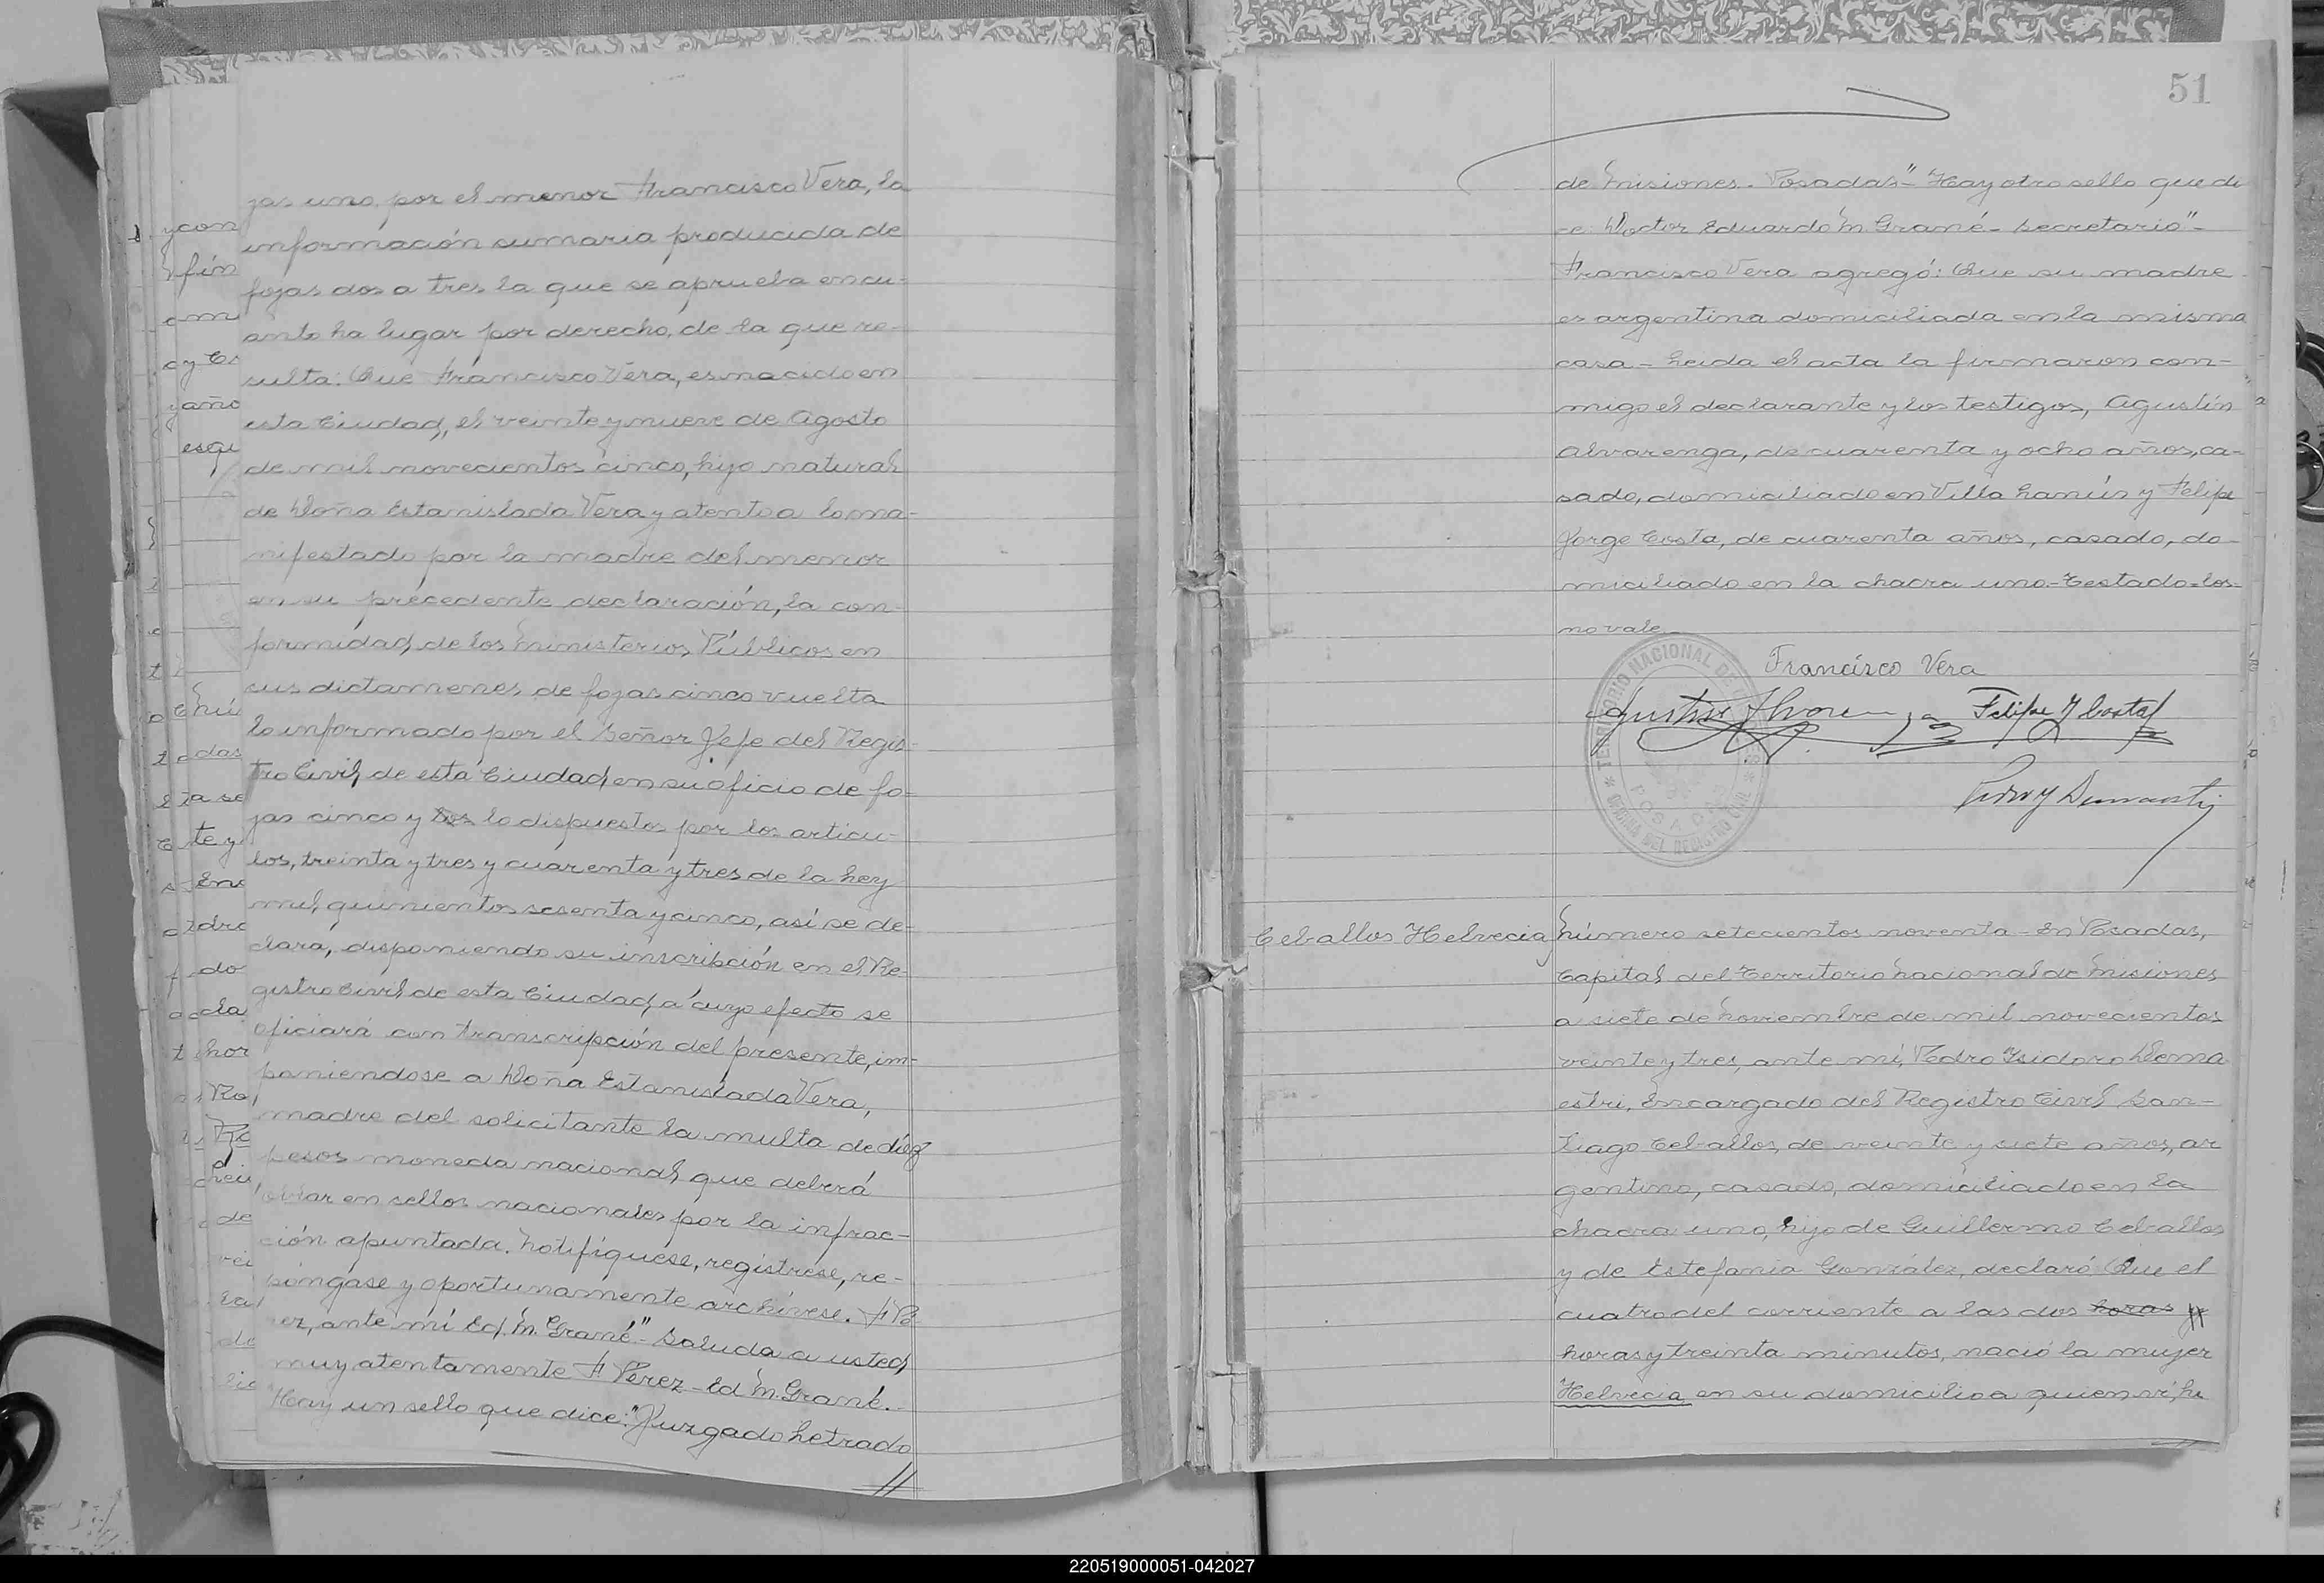 jas uno, por el menor Francisco Vera, la
información sumaria producida de
fojas dos a tres la que se aprueba encu-
anto ha lugar por derecho, de la que re-
sulta: Que Francisco Vera, es nacido en
esta Ciudad, el veinte y nueve de Agosto
de mil novecientos cinco, hijo natural
de Doña Estanislada Vera y atento a lo ma-
nifestado por la madre del menor
en su precedente declaración, la con-
formidad de los Ministerios Públicos en
sus dictamenes de fojas cinco vuelta
lo informado por el Señor Jefe del Regis-
tro Civil de esta Ciudad en su oficio de fo-
jas cinco y los lo dispuestos por los articu-
los, treinta y tres y cuarenta y tres de la Ley
mil quinientos sesenta y cinco, así se de-
clara, disponiendo su inscripción en el Re-
gistro Civil de esta Ciudad, a cuyo efecto se
oficiará con transcripción del presente, im-
poniendose a Doña Estanislada Vera,
madre del solicitante la multa de diez
pesos moneda nacional que deberá
oblar en sellos nacionales por la infrac-
ción apuntada. Notifíquese, registrese, re-
póngase y oportunamente archívese. F Pé
rez, ante mí Ed. M. Grané." Saluda a usted
muy atentamente F Pérez - Ed M. Grané.
Hay un sello que dice: "Juzgado Letrado
51
de Misiones. Posadas" - Hay otro sello que di
ce: Doctor Eduardo M. Grané - Secretario" -
Francisco Vera agregó: Que su madre
es argentina domiciliada en la misma
casa - Leida el acta la firmaron con-
migo el declarante y los testigos, Agustín
Alvarenga, de cuarenta y ocho años, ca-
sado, domiciliado en Villa Lanús y Felipe
Jorge Costa, de cuarenta años, casado, do
miciliado en la chacra uno. - Testado = los -
no vale
Francisco Vera
Felipe J Costa
TERRITORIO NACIONAL DE
POSADAS
OFICINA DEL REGISTRO CIVIL
Ceballos Helvecia
Número setecientos noventa - En Posadas,
Capital del Territorio Nacional de Misiones
a siete de Noviembre de mil novecientos
veinte y tres, ante mí, Pedro Isidoro Dema
estri, Encargado del Registro Civil San-
tiago Ceballos, de veinte y siete años, ar
gentino, casado, domiciliado en la
chacra uno, hijo de Guillermo Ceballos
y de Estefania González, declaró: Que el
cuatro del corriente a las dos horas y
horas y treinta minutos, nació la mujer
Helvecia en su domicilio a quien ví, hi
220519000051-042027